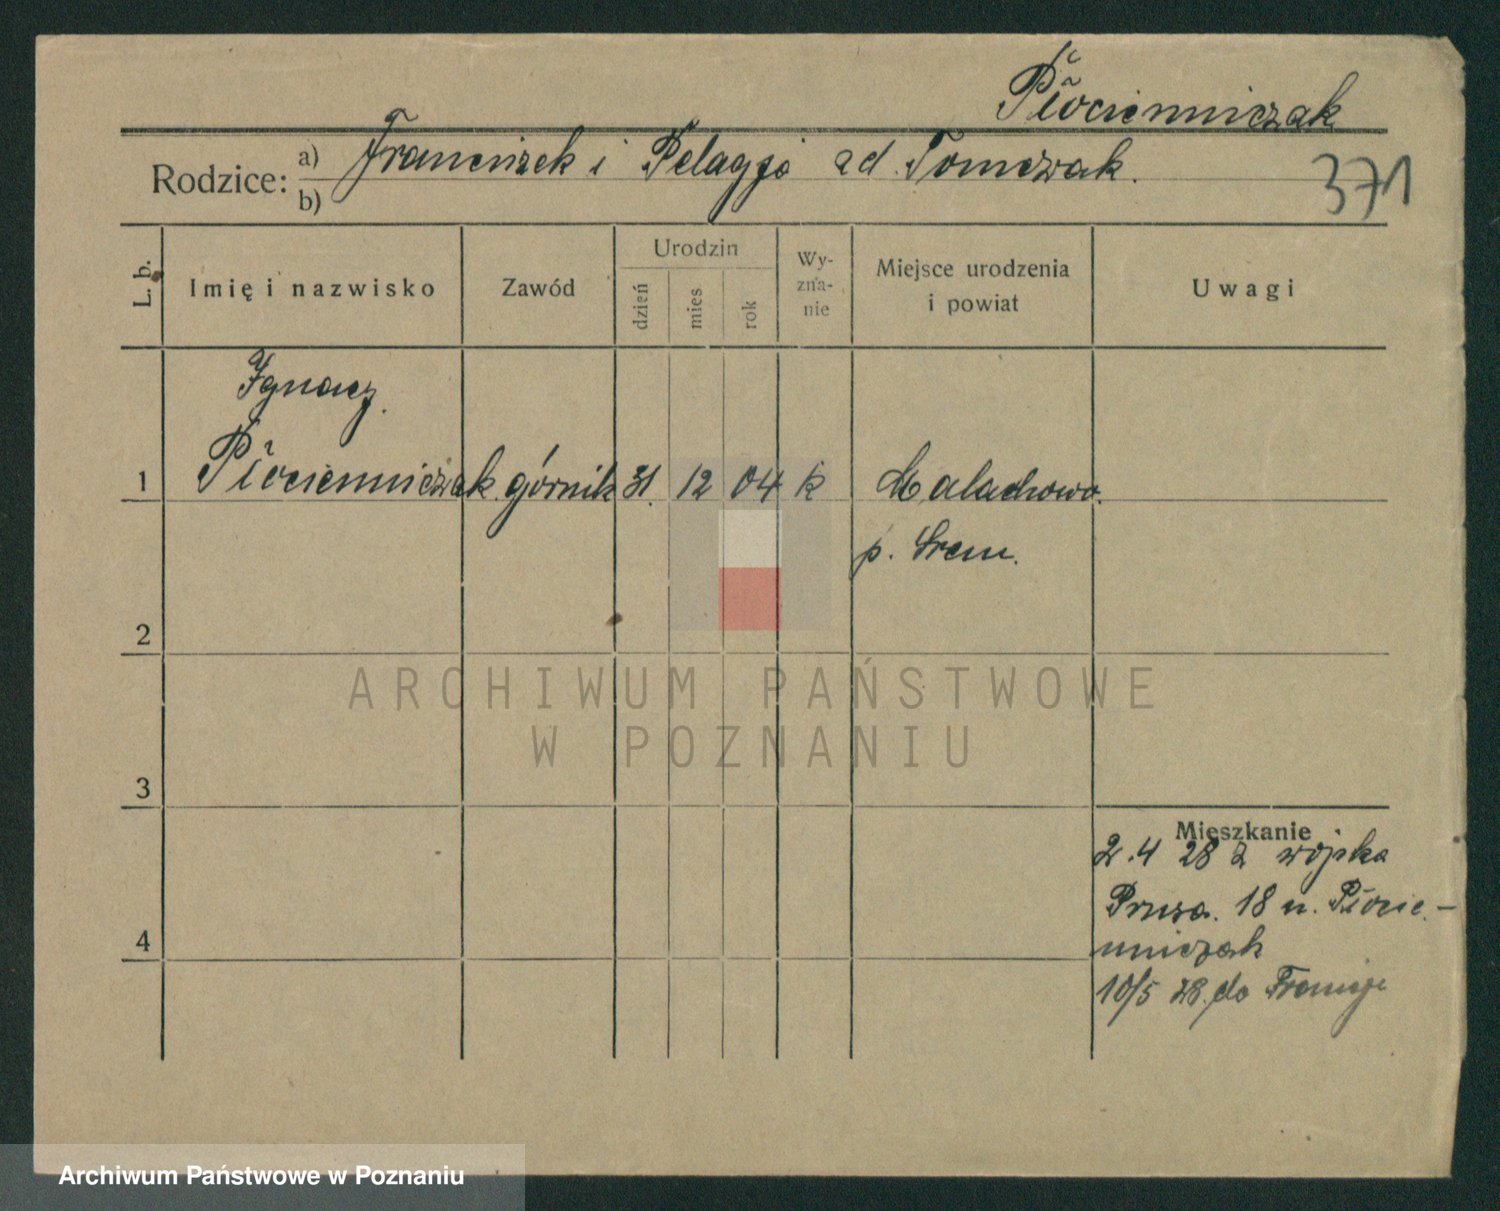 Płocienniczak
Rodzice: a) Franciszek i Pelagja zd. Tomczak.
b)
371
L. b.
Imię i nazwisko
Zawód
Urodzin
dzień
mies
rok
Wy-
zna-
nie
Miejsce urodzenia
i powiat
Uwagi
Ignacy
1 Płocienniczak górnik 31. 12 04 k Małachowo.
p. Śrem.
2
3
4
Mieszkanie
2.4 28 z wojska
Prusa. 18 u. Płocie-
nniczak
10/5 28. do Francji
ARCHIWUM PAŃSTWOWE
W POZNANIU
Archiwum Państwowe w Poznaniu